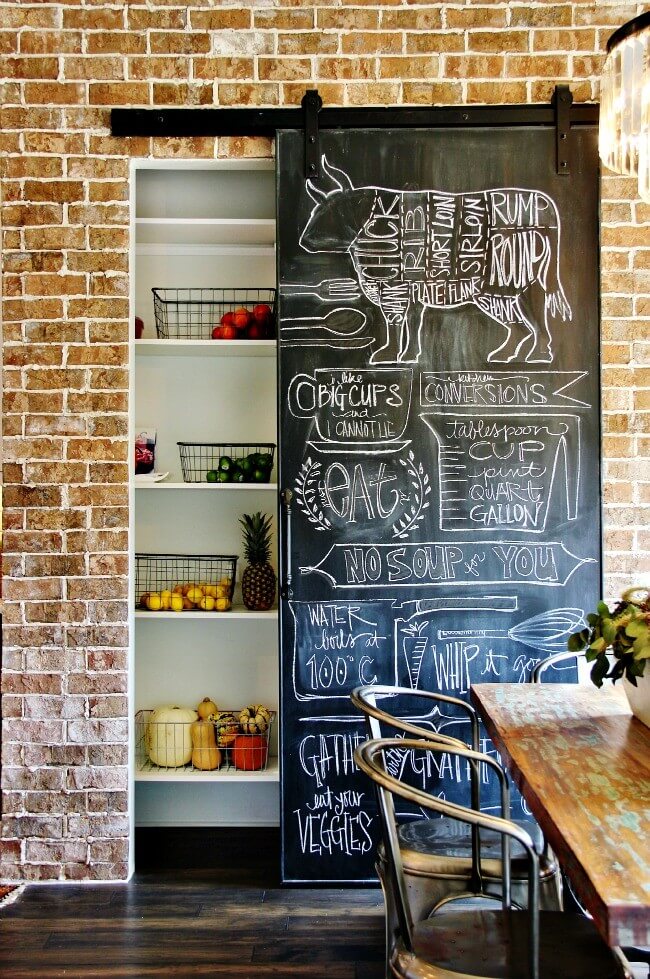 CHUCK
RIB
SHORT LOIN
SIRLOIN
RUMP
ROUND
SHANK
PLATE
FLANK
SHANK
i like
BIG CUPS
and
I CANNOT LIE
kitchen
CONVERSIONS
tablespoon
CUP
pint
QUART
GALLON
eat
NO SOUP for YOU
WATER
boils at
100°C
WHIP it
GATHER
eat your
VEGGIES